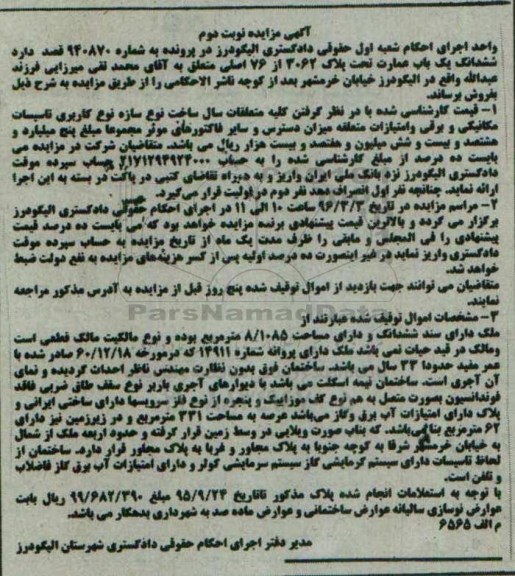 آگهی مزایده نوبت دوم
واحد اجرای احکام شعبه اول حقوقی دادگستری الیگودرز در پرونده به شماره ۹۴۰۸۷۰ قصد دارد
ششدانگ یک باب عمارت تحت پلاک ۳۰۶۲ از ۷۶ اصلی متعلق به آقای محمد تقی میرزایی فرزند
عبدالله واقع در الیگودرز خیابان خرمشهر بعد از کوچه ناشر الاحکامی را از طریق مزایده به شرح ذیل
بفروش برساند.
۱- قیمت کارشناسی شده با در نظر گرفتن کلیه متعلقات سال ساخت نوع سازه نوع کاربری تاسیسات
مکانیکی و برقی وامتیازات متعلقه میزان دسترس و سایر فاکتورهای موثر مجموعا مبلغ پنج میلیارد و
هشتصد و بیست و شش میلیون و هفتصد و بیست هزار ریال می باشد. متقاضیان شرکت در مزایده می
بایست ده درصد از مبلغ کارشناسی شده را به حساب ۲۱۷۱۲۹۴۹۲۴۰۰۰ بحساب سپرده موقت
دادگستری الیگودرز نزد بانک ملی ایران واریز و به همراه تقاضای کتبی در پاکت در بسته به این اجرا
ارائه نماید. چنانچه نفر اول انصراف دهد نفر دوم در اولیت قرار می‌گیرد.
۲- مراسم مزایده در تاریخ ۹۶/۳/۳ ساعت ۱۰ الی ۱۱ در اجرای احکام حقوقی دادگستری الیگودرز
برگزار می گردد و بالاترین قیمت پیشنهادی برنده مزایده خواهد بود که می بایست ده درصد قیمت
پیشنهادی را فی المجلس و مابقی را ظرف مدت یک ماه از تاریخ مزایده به حساب سپرده موقت
دادگستری واریز نماید در غیر اینصورت ده درصد اولیه پس از کسر هزینه‌های مزایده به نفع دولت ضبط
خواهد شد.
متقاضیان می توانند جهت بازدید از اموال توقیف شده پنج روز قبل از مزایده به آدرس مذکور مراجعه
نمایند.
۳- مشخصات اموال توقیف شده عبارتند از
ملک دارای سند ششدانگ و دارای مساحت ۸/۱۰۸۵ مترمربع بوده و نوع مالکیت مالک قطعی است
ومالک در قید حیات نمی باشد ملک دارای پروانه شماره ۱۴۹۱۱ که درمورخه ۶۰/۱۲/۱۸ صادر شده با
عمر مفید حدودا ۳۳ سال می باشد. ساختمان فوق بدون نظارت مهندس ناظر احداث گردیده و نمای
آن آجری است. ساختمان نیمه اسکلت می باشد با دیوارهای آجری باربر نوع سقف طاق ضربی فاقد
فونداسیون بصورت متصل به هم نوع کف موزاییک و پنجره از نوع فلز سرویسها دارای ساختی ایرانی و
پلاک دارای امتیازات آب برق وگاز می‌باشد عرصه به مساحت ۳۳۱ مترمربع و در زیرزمین نیز دارای
۶۲ مترمربع بنا می‌باشد. که بناب صورت ویلایی در وسط زمین قرار گرفته و حدود اربعه ملک از شمال
به خیابان خرمشهر شرقا به کوچه جنوبا به پلاک مجاور و غربا به پلاک مجاور قرار دارد. ساختمان از
لحاظ تاسیسات دارای سیستم گرمایشی گاز سیستم سرمایشی کولر و دارای امتیازات آب برق گاز فاضلاب
و تلفن است.
با توجه به استعلامات انجام شده پلاک مذکور تاتاریخ ۹۵/۹/۲۴ مبلغ ۹۹/۶۸۲/۳۹۰ ریال بابت
عوارض نوسازی سالیانه عوارض ساختمانی و عوارض ماده صد به شهرداری بدهکار می باشد.
م الف ۶۵۶۵
مدیر دفتر اجرای احکام حقوقی دادگستری شهرستان الیگودرز
ParsNamadData